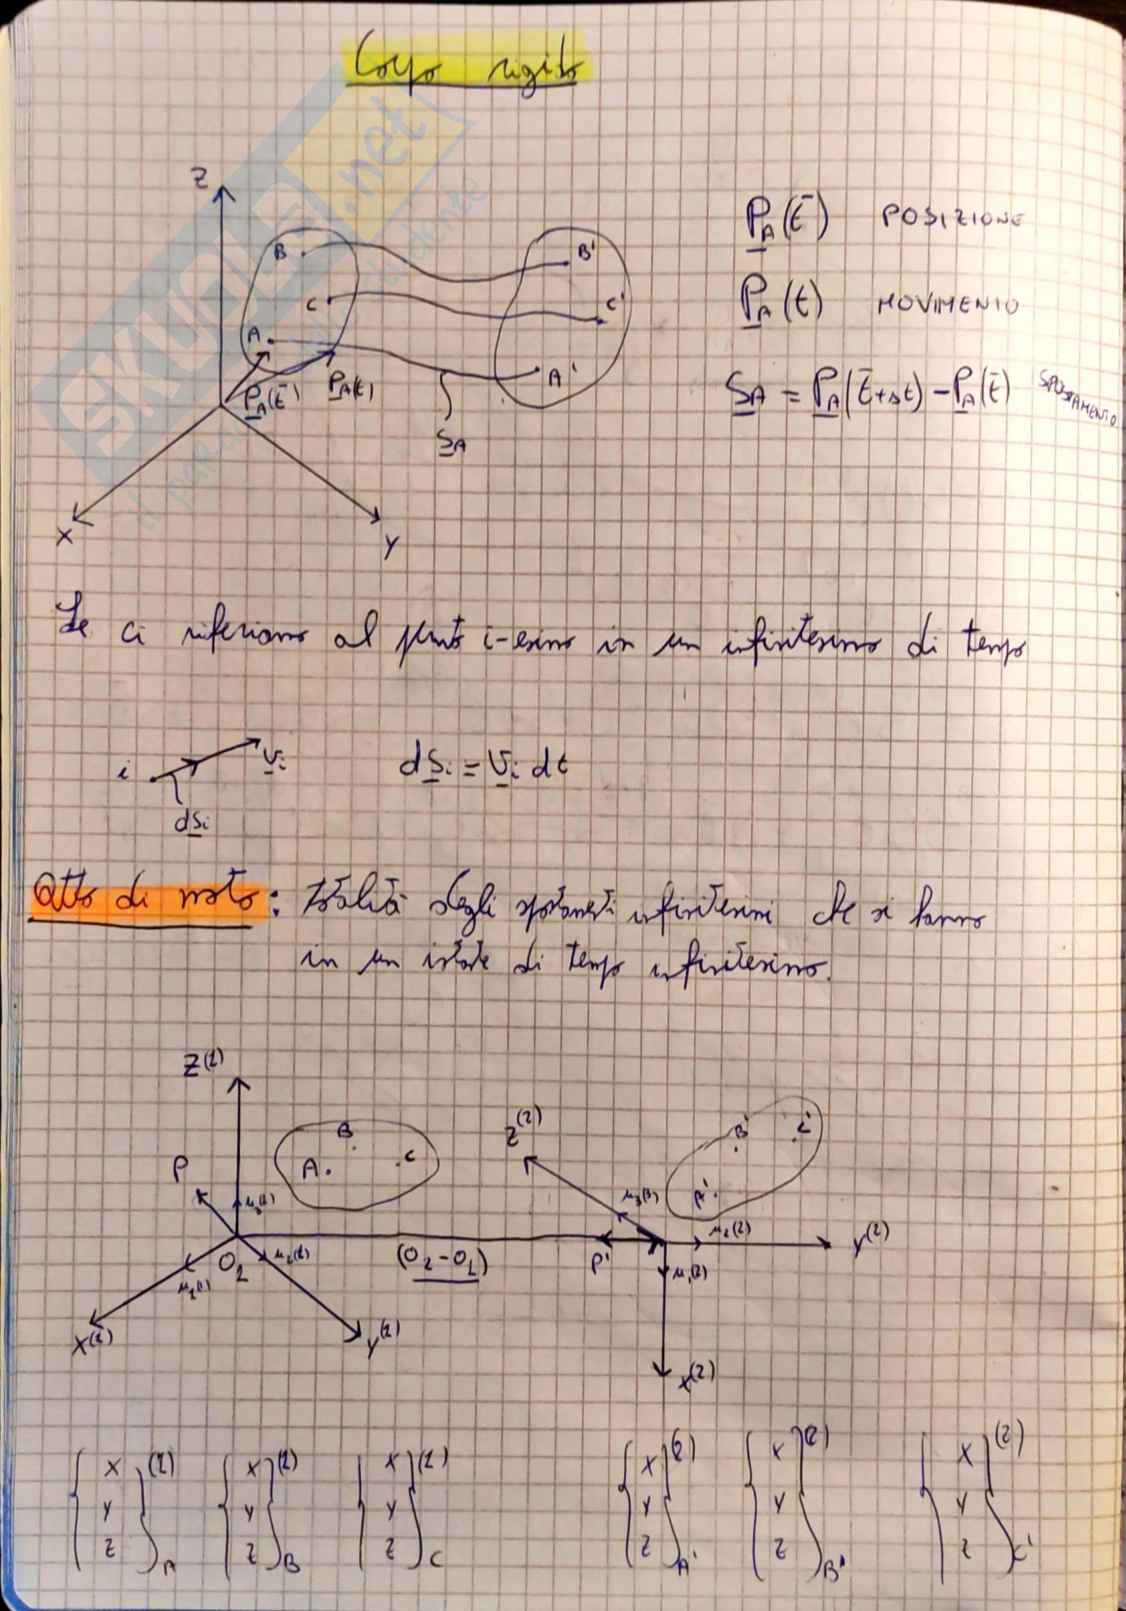 Corpo rigido
SKUOLA.net
Z
B
C
A
P_A(t̄)
P_A(t)
S_A
B'
C'
A'
X
Y
P_A(t̄) POSIZIONE
P_A(t) MOVIMENTO
S_A = P_A(t̄+Δt) - P_A(t̄) SPOSTAMENTO
Se ci riferiamo al punto i-esimo in un infinitesimo di tempo
i
v_i
dS_i
dS_i = v_i dt
Atto di moto: totalità degli spostamenti infinitesimi che si hanno
in un istante di tempo infinitesimo.
Z(1)
P
A
B
C
μ3(1)
μ2(1)
μ1(1)
X(1)
Y(1)
(O2 - O1)
Z(2)
A'
B'
C'
μ3(2)
μ2(2)
μ1(2)
P'
Y(2)
X(2)
{X Y Z}(1)A {X Y Z}(1)B {X Y Z}(1)C {X Y Z}(2)A' {X Y Z}(2)B' {X Y Z}(2)C'